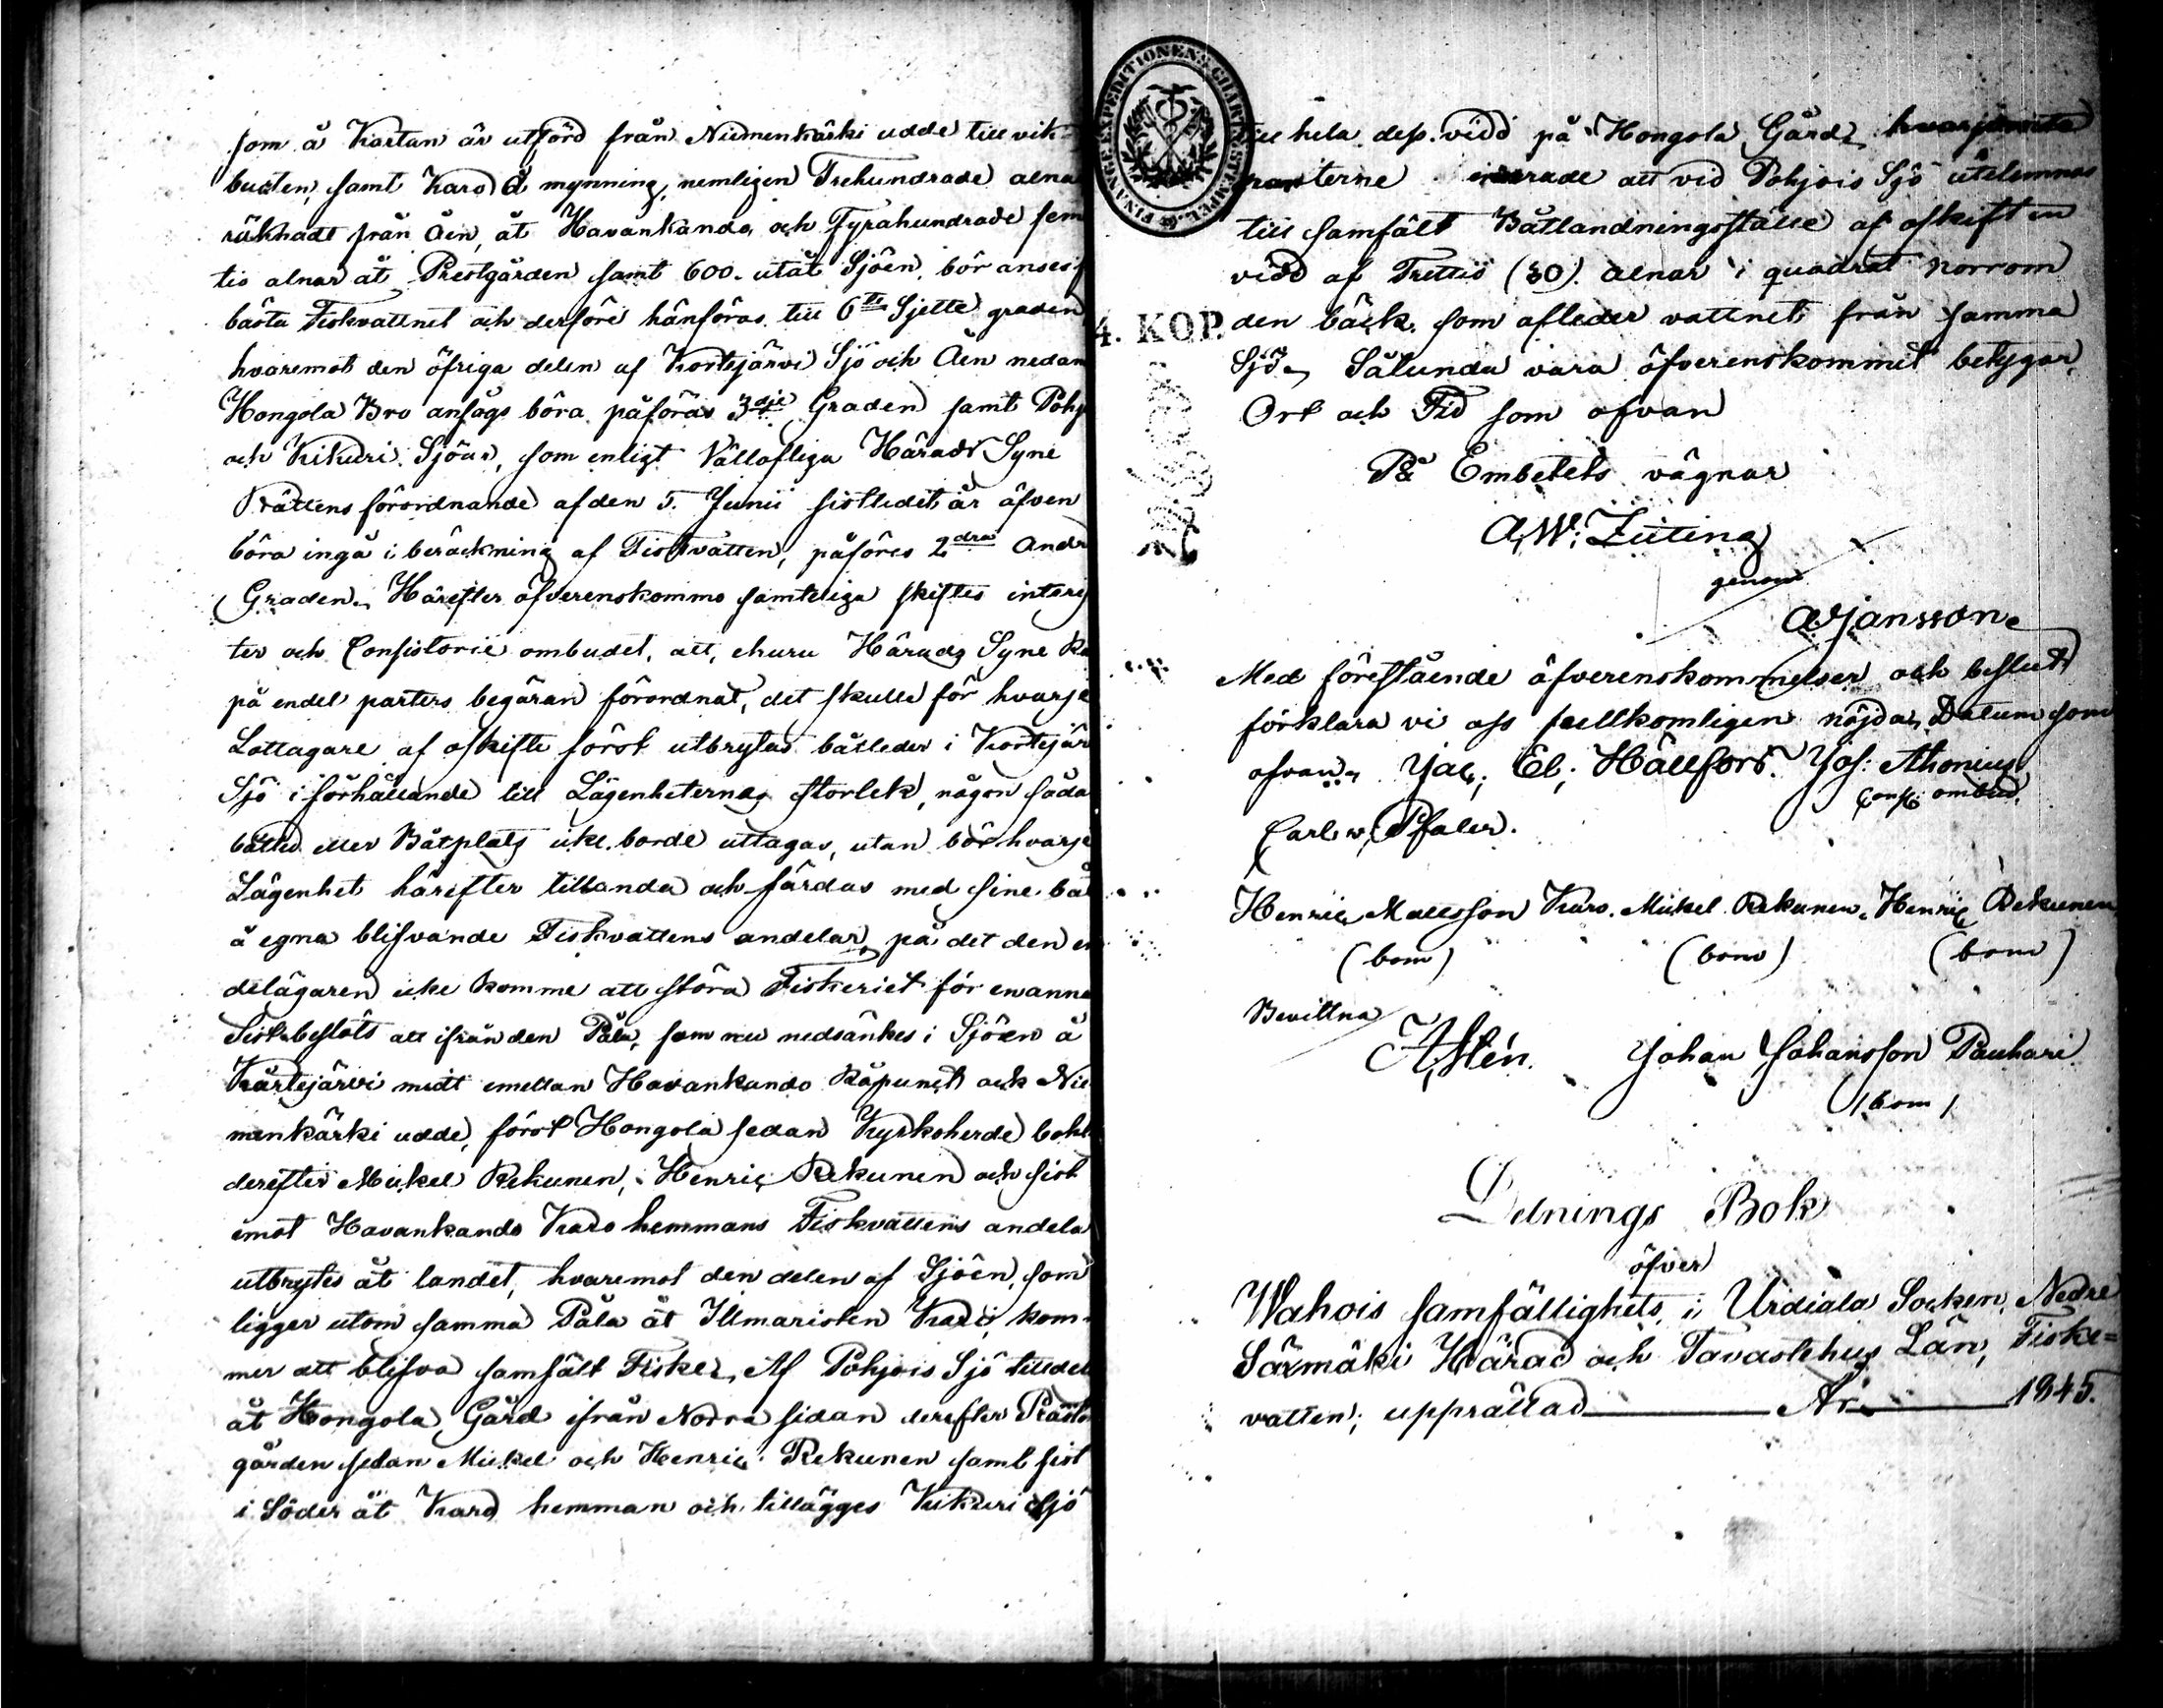 som å Kartan är utförd från Niemenkärki udde till vik-
busten, samt Karo å mynning, nemligen Trehundrade alna
räknadt från Åen, åt Havankando och Fyrahundrade fem
tio alnar åt Prestgården samt 600 utåt Sjöen, bör anses
bästa Fiskvattnet och derföre hänföras till 6te Sjette graden
hvaremot den öfriga delen af Kortejärvi Sjö och Åen nedan
Hongola Bro ansågs böra påföras 3dje Graden samt Pohj
och Kikuri Sjöar, som enligt Vällofliga Härads Syne
Rättens förordnande af den 5. Junii sistledet år äfven
böra ingå i beräckning af Fiskvatten, påföres 2dra Andr
Graden. Härefter öfverenskommo samteliga skiftes intres
ter och Consistorii ombudet, att, ehuru Härads Syne Rä
på endel parters begäran förordnat, det skulle för hvarje
Lottagare af oskifto först utbrytas båtleder i Kortejär
Sjö i förhållande till Lägenheternas storlek, någon såda
båtled eller Båtplats icke borde uttagas, utan bör hvarje
Lägenhet härefter tillanda och färdas med sine båt
å egna blifvande Fiskvattens andelar, på det den en
delägaren icke komme att störa Fiskeriet för en anna
Sist beslöts att ifrån den Påla, som nu nedsänkes i Sjöen å
Kärtejärvi midt emellan Havankando Råpunct och Nie
menkärki udde, först Hongola sedan Kyrkoherde bohl
derefter Mickel Rekunen, Henric Rekunen och sist
emot Havankando Karo hemmans Fiskvattens andela
utbrytes åt landet, hvaremot den delen af Sjöen, som
ligger utom samma Påla åt Illmaristen Karo, kom-
mer att blifva samfält Fiske. Af Pohjois Sjö tilldel
åt Hongola Gård ifrån Norra sidan derefter Prästo
gården sedan Mickel och Henric Rekunen samt sist
i Söder åt Karo hemman och tillägges Kikuri Sjö
FINANCE EXPEDITIONENS CHARTÆ STEMPEL
4. KOP.
till hela dess vidd på Hongola Gård, hvarjemte
parterne enade att vid Pohjois Sjö utelemnas
till samfält Båtlandningsställe af oskift en
vidd af Trettio (30) alnar i quadrat norrom
den bäck som afleder vattnet från samma
Sjö. Sålunda vara öfverenskommet betygar,
Ort och Tid som ofvan
På Embetets vägnar
A. W. Ziiting
genom
AJansson
Med förestående öfverenskommelser och beslut
förklara vi oss fullkomligen nöjda, Datum som
ofvan. Jac. El. Hällfors. Jos: Ahonius
Cons: ombud.
Carl v. Pfaler.
Henric Mattsson Karo. Mickel Rekunen. Henric Rekunen
(bom) (bom) (bom)
Bevittna
A. Johan Johansson Pauhari
(bom)
Delnings Bok
öfver
Wahois samfällighets, i Urdiala Socken, Nedre
Särmäki Härad och Tavastehus Län, Fiske=
vatten; upprättad År 1845.